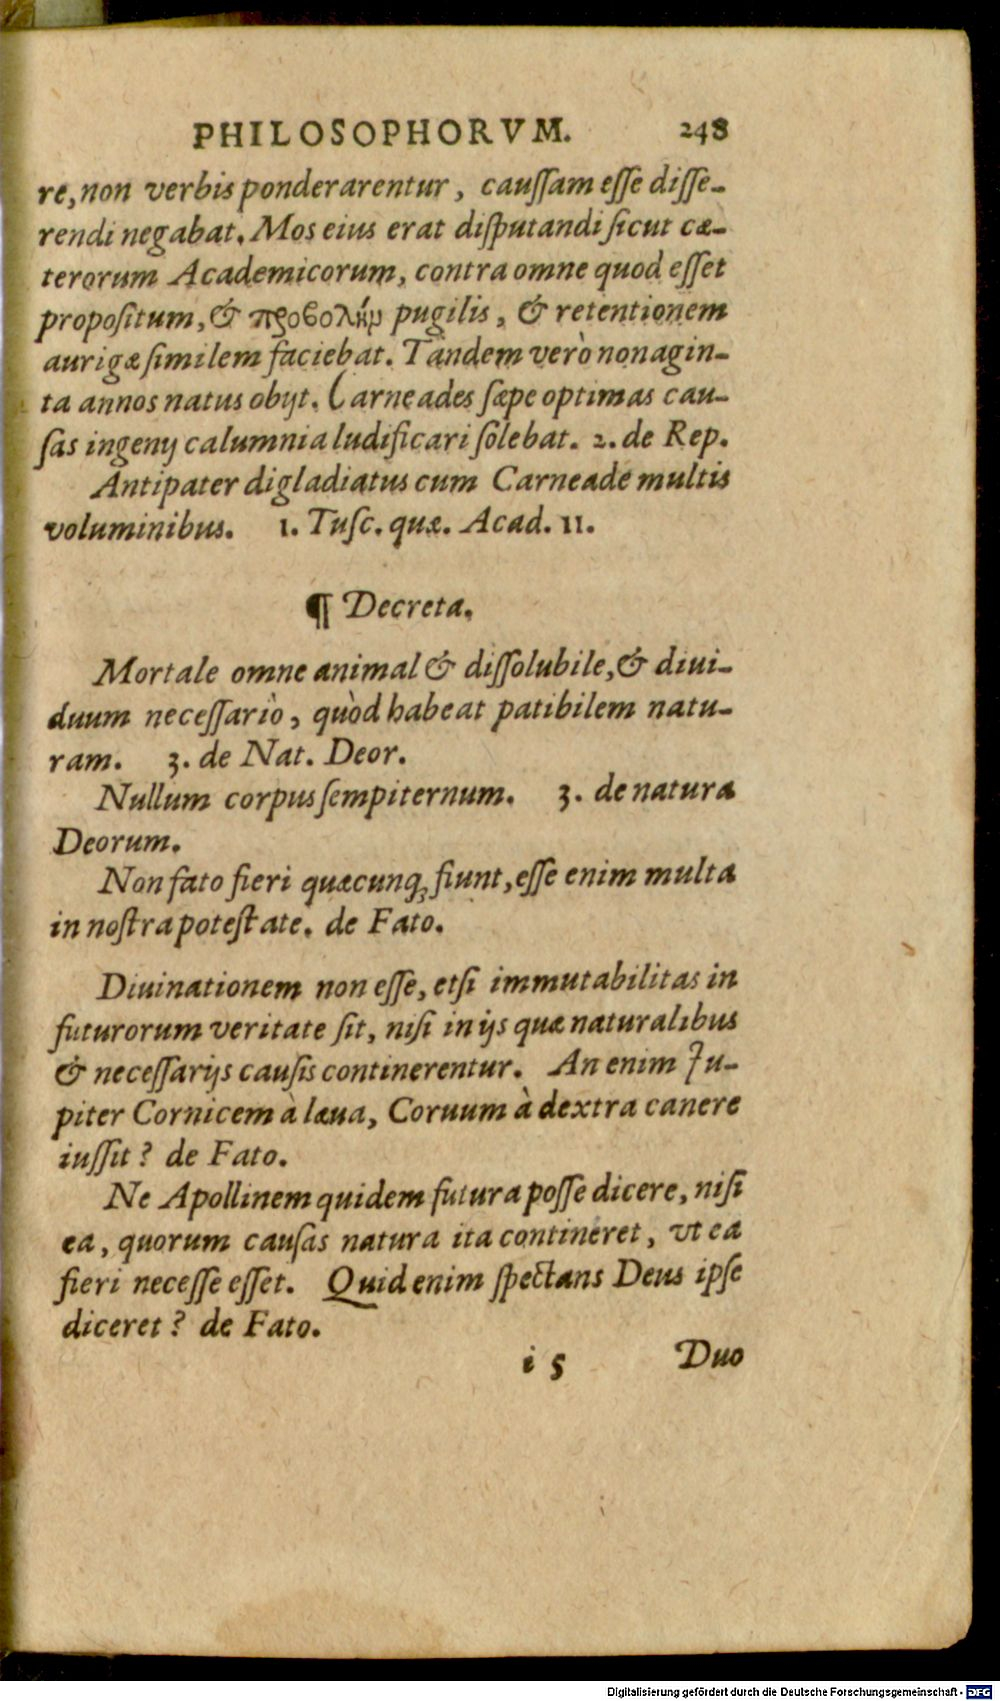 PHILOSOPHORVM. 248
re, non verbis ponderarentur, cauſſam eſſe diſſe-
rendi negabat. Mos eius erat diſputandi ſicut cæ-
terorum Academicorum, contra omne quod eſſet
propoſitum, & προβολὴν pugilis, & retentionem
aurigæ ſimilem faciebat. Tandem verò nonagin-
ta annos natus obijt. Carneades ſæpe optimas cau-
ſas ingenij calumnia ludificari ſolebat. 2. de Rep.
Antipater digladiatus cum Carneade multis
voluminibus. 1. Tuſc. quæ. Acad. 11.
¶ Decreta.
Mortale omne animal & diſſolubile, & diui-
duum neceſſariò, quòd habeat patibilem natu-
ram. 3. de Nat. Deor.
Nullum corpus ſempiternum. 3. de natura
Deorum.
Non fato fieri quæcunq; fiunt, eſſe enim multa
in noſtra poteſtate. de Fato.
Diuinationem non eſſe, etſi immutabilitas in
futurorum veritate ſit, niſi in ijs quæ naturalibus
& neceſſarijs cauſis continerentur. An enim Ju-
piter Cornicem à læua, Coruum à dextra canere
iuſſit? de Fato.
Ne Apollinem quidem futura poſſe dicere, niſi
ea, quorum cauſas natura ita contineret, vt ea
fieri neceſſe eſſet. Quid enim ſpectans Deus ipſe
diceret? de Fato.
i 5 Duo
Digitalisierung gefördert durch die Deutsche Forschungsgemeinschaft - DFG